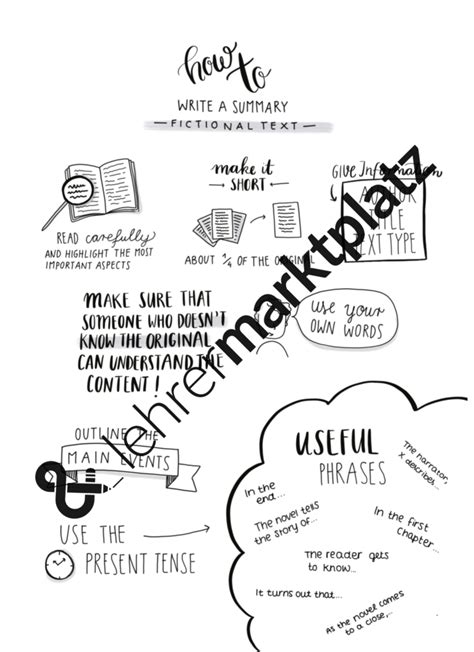 how to
WRITE A SUMMARY
— FICTIONAL TEXT —
READ carefully
AND HIGHLIGHT THE MOST
IMPORTANT ASPECTS
make it
— SHORT —
ABOUT 1/4 OF THE ORIGINAL
GIVE Information
AUTHOR
TITLE
TEXT TYPE
MAKE SURE THAT
SOMEONE WHO DOESN'T
KNOW THE ORIGINAL
CAN UNDERSTAND THE
CONTENT!
use your
OWN WORDS
OUTLINE THE
MAIN EVENTS
USE THE
PRESENT TENSE
USEFUL
PHRASES
The narrator
x describes...
In the
end...
The novel tells
the story of...
In the first
chapter...
The reader gets
to know...
It turns out that...
As the novel comes
to a close,...
lehrermarktplatz